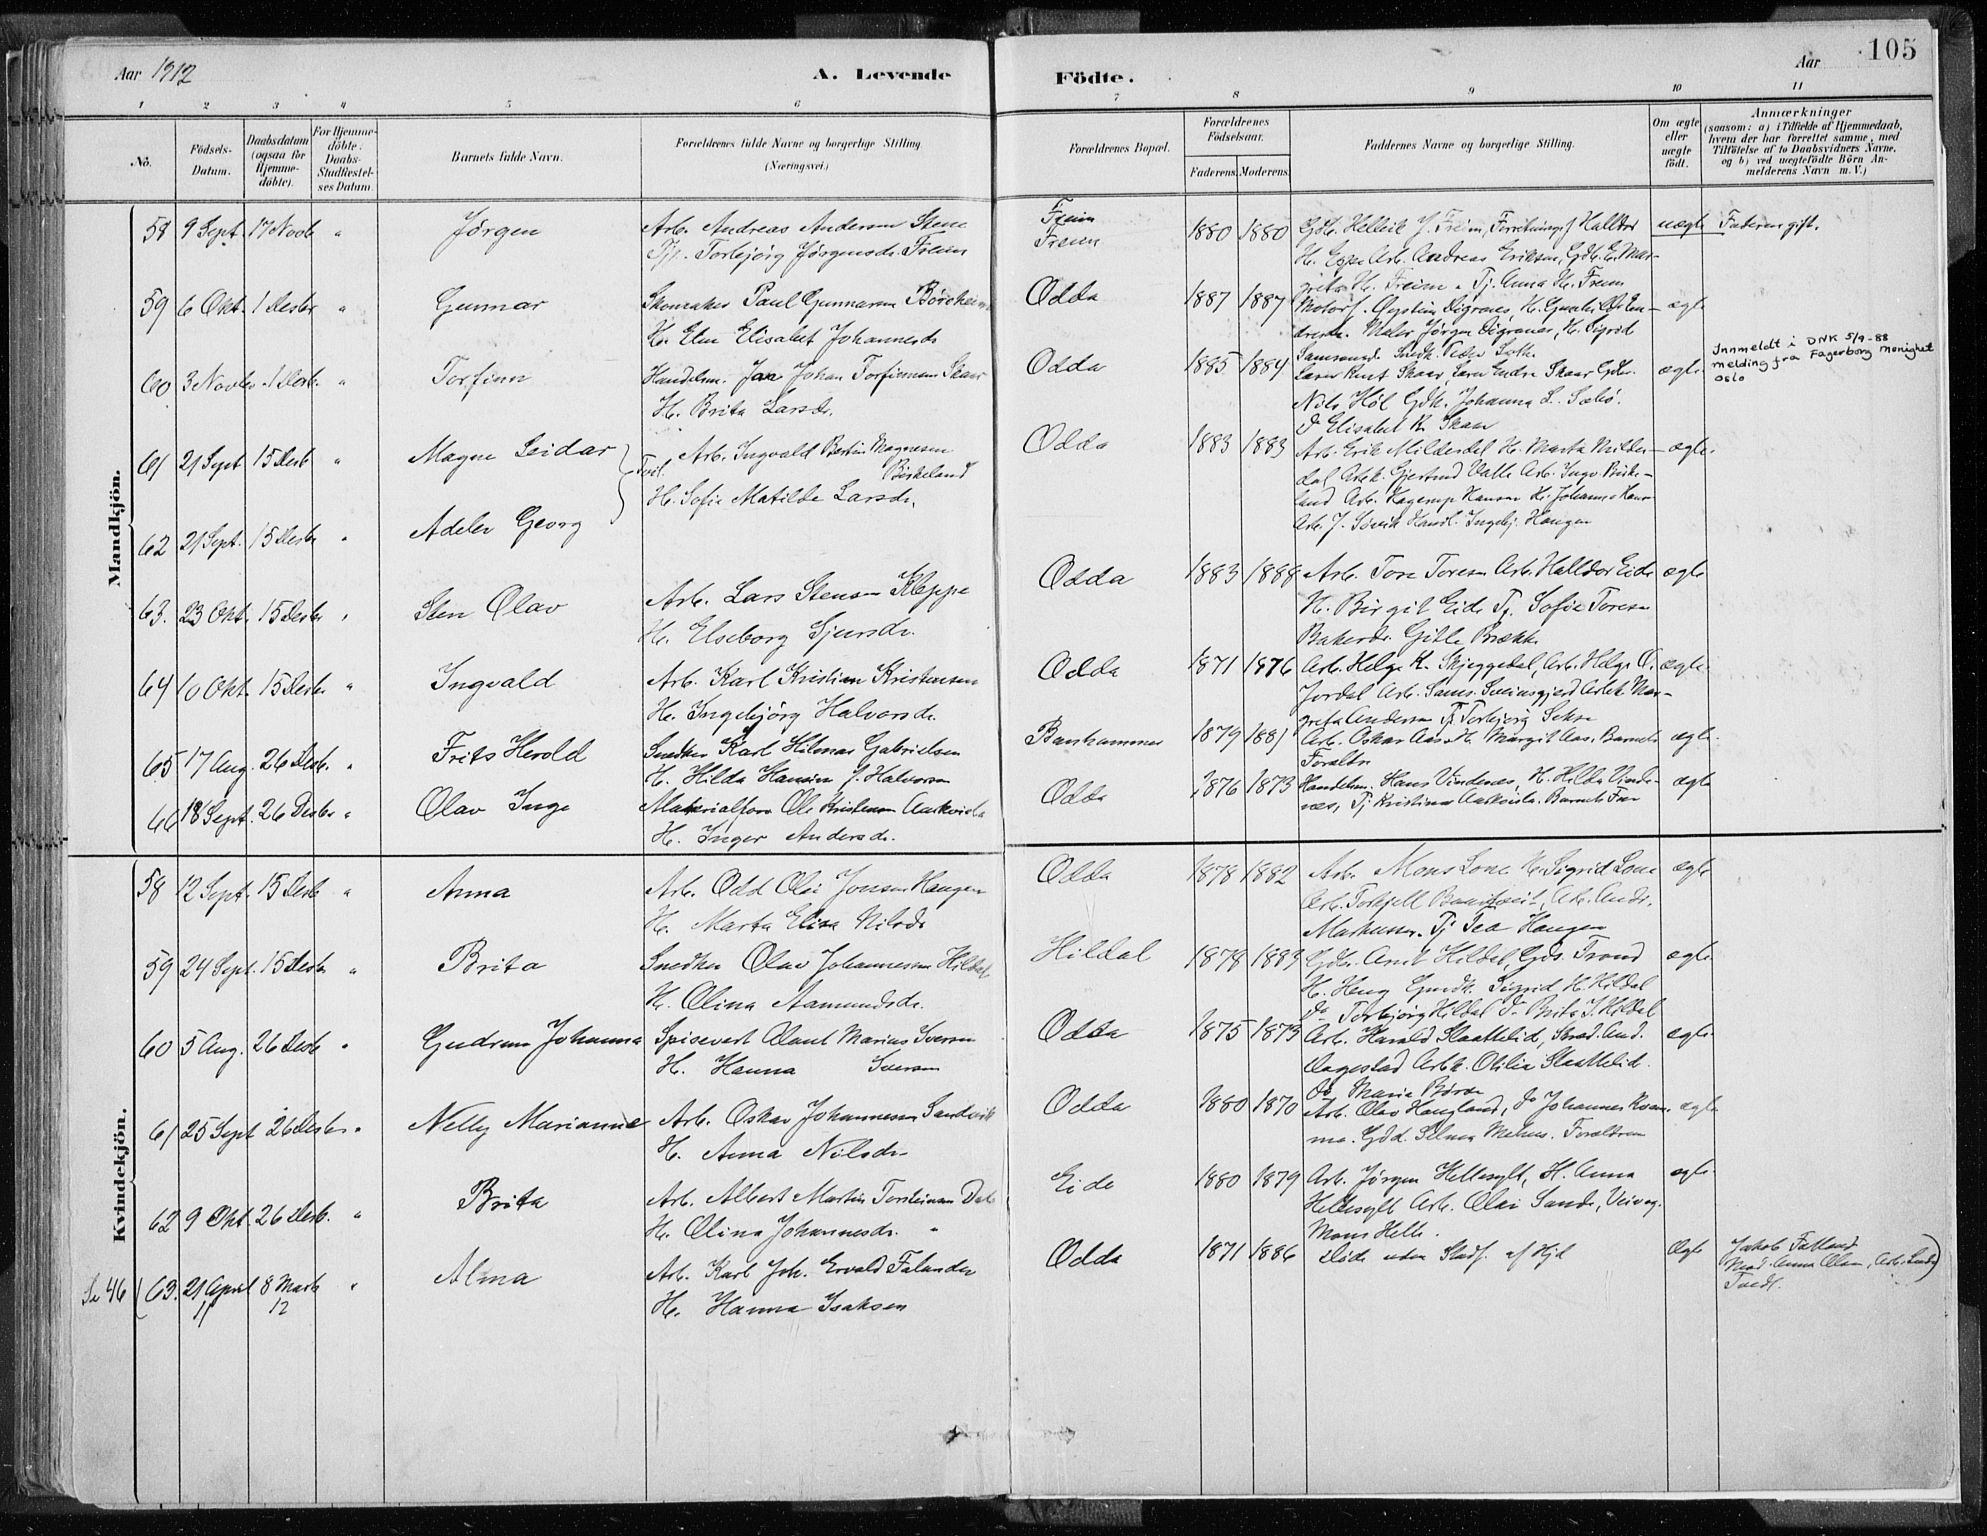 Aar 1912
A. Levende
Födte.
Aar
105
1 2 3 4 5 6 7 8 9 10 11
No.
Födsels-
Datum.
Daabsdatum
(ogsaa for
Hjemme-
döbte).
For Hjemme-
döbte:
Daabs-
Stadfæstel-
ses Datum.
Barnets fulde Navn.
Forældrenes fulde Navne og borgerlige Stilling
(Næringsvei.)
Forældrenes Bopæl.
Forældrenes
Födselsaar.
Faderens. Moderens.
Faddernes Navne og borgerlige Stilling.
Om ægte
eller
uægte
födt.
Anmærkninger
(saasom: a) i Tilfælde af Hjemmedaab,
hvem der har forrettet samme, med
Tilföielse af to Daabsvidners Navne,
og b) ved uægtefödte Börn An-
melderens Navn m. V.)
Mandkjön.
58 9 Sept. 17 Novb " Jørgen
Arb. Andreas Andersen Stene
Tj. Torbjörg Jørgensdr. Freim
Freim
Freim
1880 1880
H. Espe Arb. Andreas Eriksen,
uægte Faderen gift.
59 6 Okt. 1 Desbr " Gunnar
Skomaker Paul Gunnarsen Börsheim
H. Elen Elisabet Johannesdr
Odda 1887 1887
H. Freim. Tj. Anna H. Freim
Maler Jørgen Digranes, H. Sigrid
ægte
60 3 Novbr 1 Desb. " Torfinn
Handelsm. Johan Torfinnsen Skaar
H. Brita Larsdr.
Odda 1885 1884
Lars Knut Skaar, Lars Endre Skaar Gdbr.
Nils Hol Gdk. Johanna L. Sæbö.
Do Elisabet K. Skaar
ægte
Innmeldt i DNK 5/9-88
melding fra Fagerborg menighet
Oslo
61 21 Sept 15 Desb " Magne Leidar
Tvil. Arb. Ingvald Bertin Magnesen
Birkeland
H. Sofie Matilde Larsdr.
Odda 1883 1883
Arb. Erik Mildesdal H. Marta Mildes-
dal Arbk. Gjertrud Valle Arb. Ingv. Birke-
land Arb. Kagerup Hansen H. Johanna Hans
ægte.
62 21 Sept. 15 Desbr " Adeler Georg
63. 23 Okt. 15 Desbr " Sten Olav
Arb. Lars Stensen Kleppe
H. Elseborg Sjursdr.
Odda 1883 1888
Arb. Tore Toresen Arb. Halldor Eide
H. Birgit Eide Tj. Sofie Toresen
Bakerdr. Gitle Brække
ægte
64 10 Okt. 15 Desbr " Ingvald
Arb. Karl Kristian Kristensen
H. Ingebjörg Halvorsdr.
Odda 1871 1876
Arb. Helge K. Skjeggedal, Arb. Helge O.
Jordal Arb. Sams. Sveinsgjerd Arbk Mar-
greta Andersen Tj. Torbjörg Sekse
ægte
65 17 Aug. 26 Desb. " Frits Herold
Snedker Karl Hilmar Gabrielsen
H. Hilda Hansine f. Halvorsen
1879 1881
Arb. Oskar Aas H. Margit Aas, Barnets
Forældre
ægte
66 18 Sept. 26 Desbr " Olav Inge
Materialforv. Ole Kristensen Aakvisla
H. Inger Andersdr.
Odda 1876 1873
Handelsm. Hans Vindenes, H. Hilda Vinde-
nes, Tj. Kristine Aakvisla. Barnets Far
ægte
Kvindekjön.
58 12 Sept. 15 Desb " Anna
Arb. Odd Olai Jonsen Haugen
H. Marta Elisa Nilsdr
Odda 1878 1882
Arb. Mons Lone H. Sigrid Lone
Markussen. Tj Tea Haugen
ægte
59 24 Sept. 15 Desbr " Brita
Snedker Olav Johannessen Hildal
H. Olina Aamundsdr.
Hildal 1878 1883
Gdbr. Arnt Hildal, Gds. Trond
H. Heng Gmdk. Sigrid H. Hildal
Do Torbjörg Hildal Do Brita J. Hildal
ægte
60 5 Aug. 26 Desb " Gudrun Johanna
Spisevert Olaut Marius Iversen
H. Hanna Iversen
Odda 1875 1873
Arb. Harald Slaattelid,
Aagestad Arbk. Otilia Slaattelid.
Do Maria Börve
ægte.
61 25 Sept 26 Desbr " Nelly Marianne
Arb. Oskar Johannessen Sandvik
H. Anna Nilsdr.
Odda 1880 1870
Arb. Olav Haugland, Do Johannes Kvam-
me. Gdd. Selma Melhus. Forældrene
ægte
62 9 Okt. 26 Desb. " Brita
Arb. Albert Martin Torsteinsen Dale
H. Olina Johannesdr. "
Eide 1880 1879
Arb. Jørgen Hellesylt, H. Anna
Hellesylt Arb. Olai Sande, Veivog.
Mons Helle.
ægte
Se 46 (63. 21 April 8 Marts " Alma
11 12
Arb. Karl Joh. Ervald Falander
H. Hanna Isaksen
Odda 1871 1886
Död uden Stadf. af Hjd
Ægte
Jakob Fatland
Mad. Anna Olsen,
Tvedt.